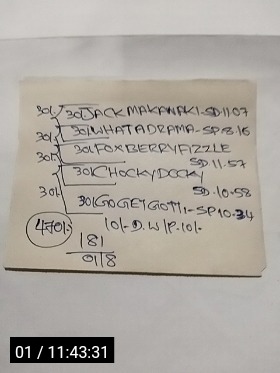 30/- JACKMAKANAKI-SD.11.07
30/- 30/-WHATADRAMA-SP.8.16
30/- 30/-FOXBERRYFIZZLE
SD 11.57
30/- 30/-CHOCKYDOCKY
SD.10.58
30/-GOGETGOTTI-SP10.34
10/-D.W/P.10/-
181
918
01 / 11:43:31